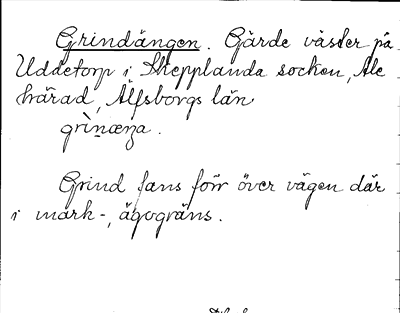 Grindängen. Gärde väster på
Uddetorp i Skepplanda socken, Ale
härad, Älfsborgs län
Grind fans förr över vägen där
i mark-, ägogräns.